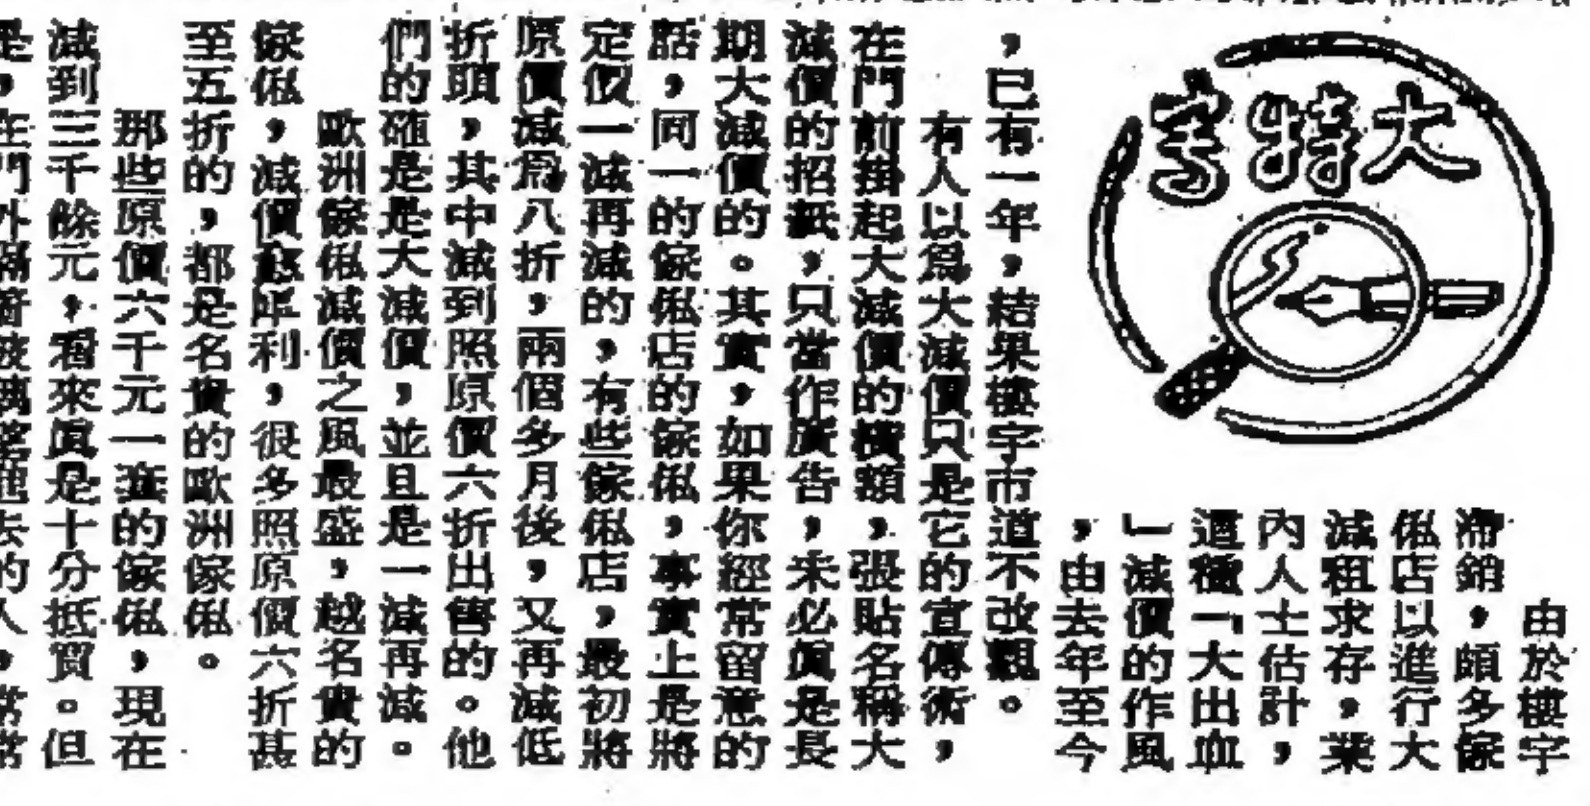 大特写
由於樓宇
滯銷，頗多傢
俬店以進行大
減租求存。業
內人士估計，
這種「大出血
」減價的作風
，由去年至今
，已有一年，結果樓宇市道不改觀。
有人以爲大減價只是它的宣傳術，
在門前掛起大減價的橫額，張貼名稱大
減價的招紙，只當作廣告，未必眞是長
期大減價的。其實，如果你經常留意的
話，同一的傢俬店的傢俬，事實上是將
定價一減再減的，有些傢俬店，最初將
原價減爲八折，兩個多月後，又再減低
折頭，其中減到照原價六折出售的。他
們的確是大減價，並且是一減再減。
歐洲傢俬減價之風最盛，越名貴的
傢俬，減價愈犀利，很多照原價六折甚
至五折的，都是名貴的歐洲傢俬。
那些原價六千元一套的傢俬，現在
減到三千餘元，看來眞是十分抵買。但